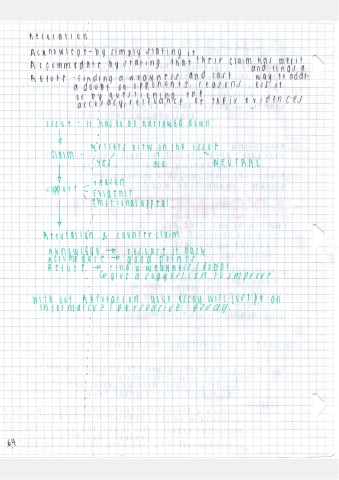 Refutation
Acknowledge - by simply stating it
Accommodate by stating that their claim has merit
and finds a
Refute - finding a weakness and cast way to address
a doubt on opponents reasons
or by questioning the
accuracy, relevance of their evidences
issue - it has to be narrowed down
claim - writers view on the issue
yes NO NEUTRAL
support - reason
- evidence
emotional appeal
Refutation & counterclaim
Acknowledge → restate it back
Accommodate → good points
Refute → find a weakness / doubt
↳ give a suggestion to improve
with out Refutation, your essay will just be an
informative / persuasive essay.
64